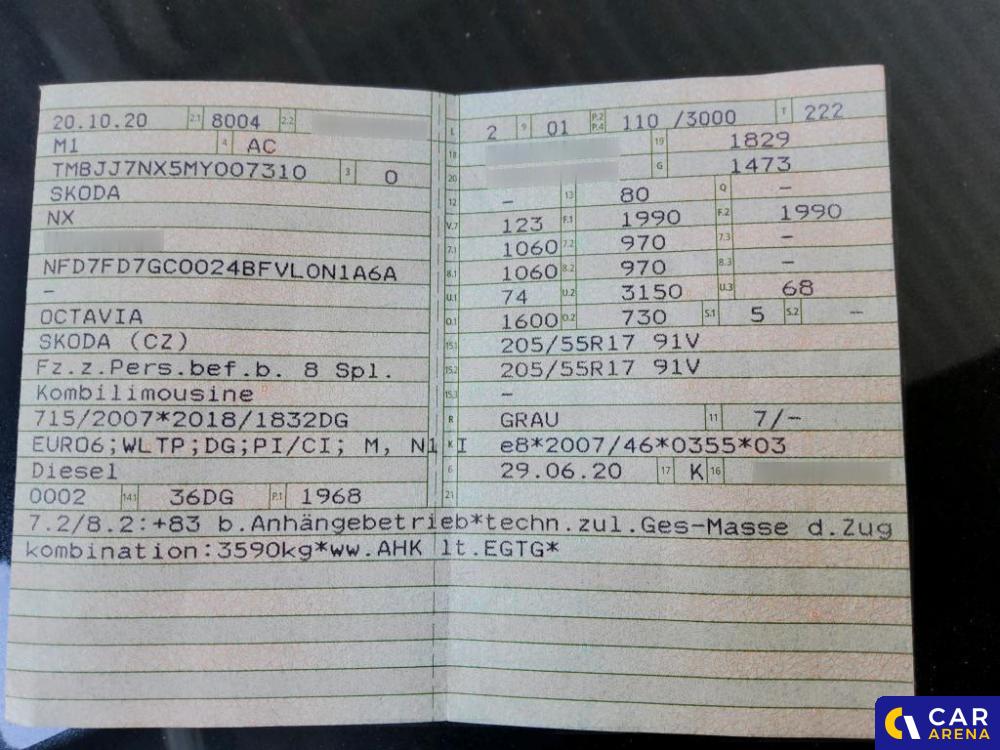 20.10.20 2.1 8004 2.2
M1 4 AC
TMBJJ7NX5MY007310 3 0
SKODA
NX
NFD7FD7GC0024BFVL0N1A6A
–
OCTAVIA
SKODA (CZ)
Fz.z.Pers.bef.b. 8 Spl.
Kombilimousine
715/2007*2018/1832DG
EURO6;WLTP;DG;PI/CI; M, N1 I
Diesel
0002 14.1 36DG P.1 1968
L 2 9 01 P.2 P.4 110 /3000 T 222
18 19 1829
20 G 1473
12 – 13 80 Q –
V.7 123 F.1 1990 F.2 1990
7.1 1060 7.2 970 7.3 –
8.1 1060 8.2 970 8.3 –
U.1 74 U.2 3150 U.3 68
O.1 1600 O.2 730 S.1 5 S.2 –
15.1 205/55R17 91V
15.2 205/55R17 91V
15.3 –
R GRAU 11 7/–
K e8*2007/46*0355*03
6 29.06.20 17 K 16
21
7.2/8.2:+83 b.Anhängebetrieb*techn.zul.Ges-Masse d.Zug
kombination:3590kg*ww.AHK lt.EGTG*
CAR
ARENA